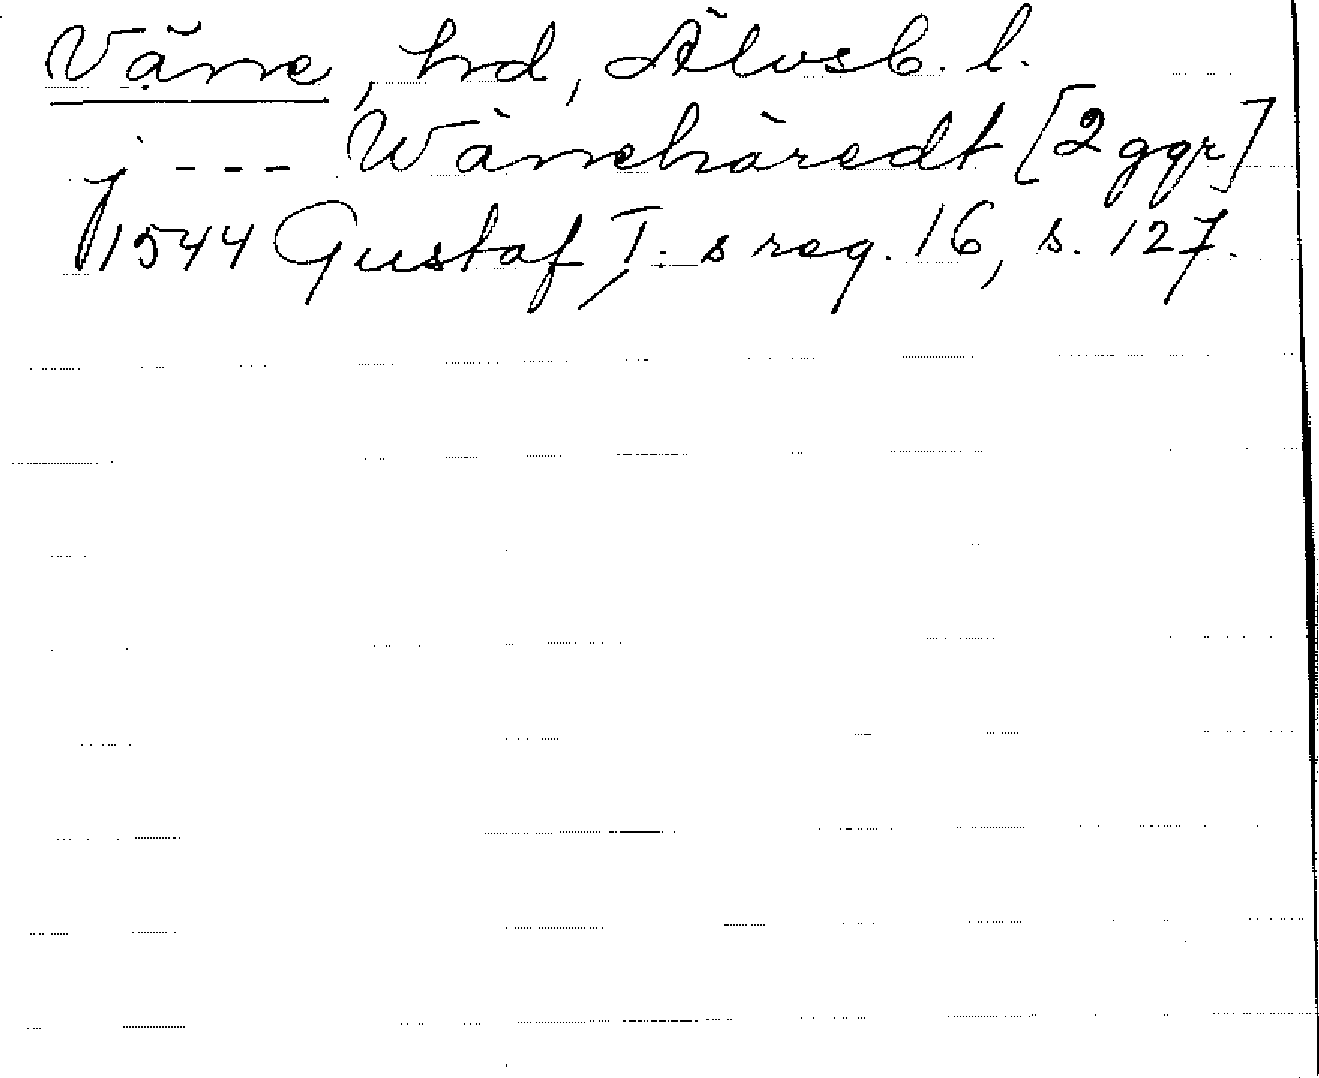 Väne, hrd, Älvsb. l.
j --- Wänehäredt [2 ggr]
1544 Gustaf I:s reg. 16, s. 127.